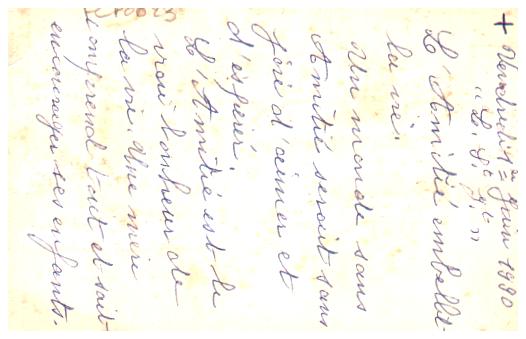 + Vendredi 1er Juin 1990
L'Amitié embellit
la vie.
Un monde sans
Amitié serait sans
joie d'aimer et
d'espérer.
L'Amitié est le
vrai bonheur de
la vie. Une mère
comprend tout et sait
encourager ses enfants.